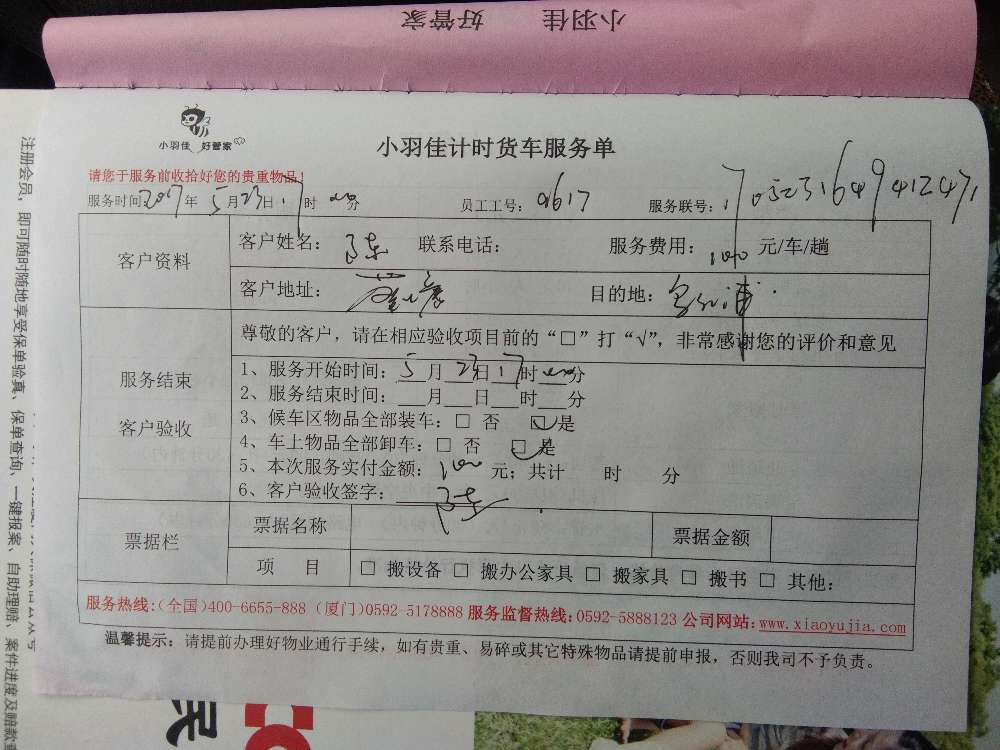 小羽佳 好管家
小羽佳 好管家
小羽佳计时货车服务单
请您于服务前收拾好您的贵重物品!
服务时间:2017年5月23日17时00分 员工工号: 0617 服务联号:
客户资料
客户姓名: 陈 联系电话: 服务费用: 100 元/车/趟
客户地址: 目的地:
服务结束
客户验收
尊敬的客户，请在相应验收项目前的“□”打“√”，非常感谢您的评价和意见
1、服务开始时间: 5月23日17时00分
2、服务结束时间: ___月___日___时___分
3、候车区物品全部装车: □ 否 ☑是
4、车上物品全部卸车: □ 否 ☑是
5、本次服务实付金额: 100 元; 共计 时 分
6、客户验收签字: 陈
票据栏
票据名称 票据金额
项 目 □ 搬设备 □ 搬办公家具 □ 搬家具 □ 搬书 □ 其他:
服务热线:(全国)400-6655-888 (厦门)0592-5178888 服务监督热线:0592-5888123 公司网站:www.xiaoyujia.com
温馨提示: 请提前办理好物业通行手续，如有贵重、易碎或其它特殊物品请提前申报，否则我司不予负责。
注册会员，即可随时随地享受保单验真、保单查询、一键报案、自助理赔、案件进度及赔款查
民